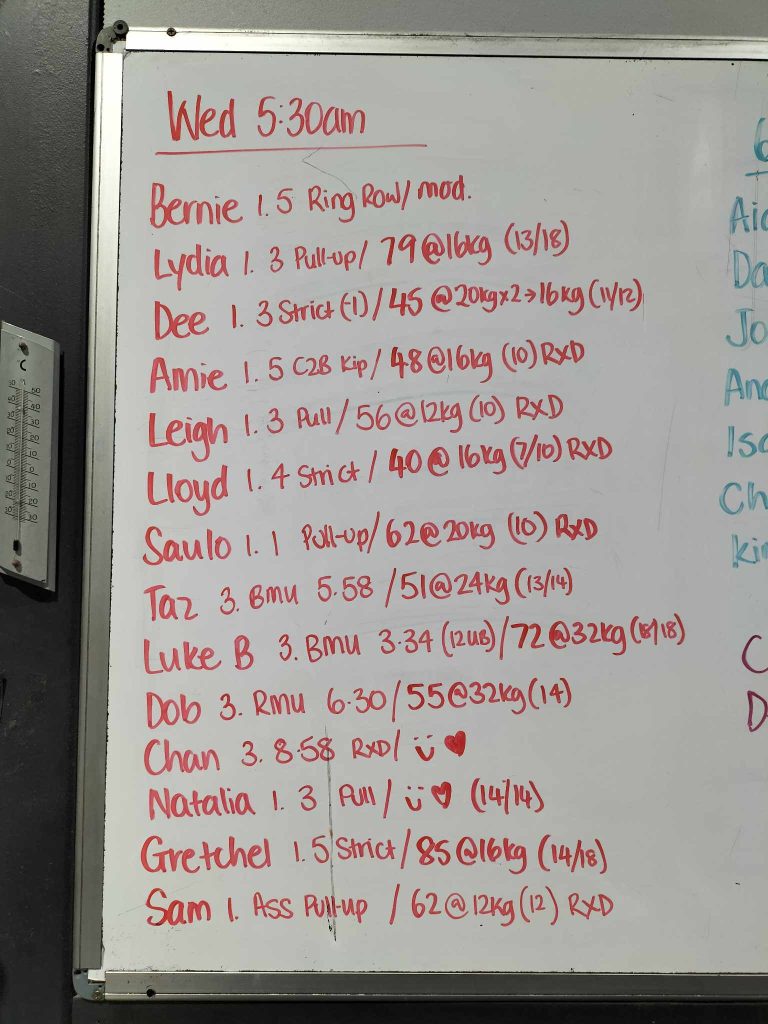 Wed 5:30am
Bernie 1. 5 Ring Row/ mod.
Lydia 1. 3 Pull-up/ 79@16kg (13/18)
Dee 1. 3 Strict (-1) / 45 @20kgx2→16kg (11/12)
Amie 1. 5 C2B Kip/ 48@16kg (10) RXD
Leigh 1. 3 Pull/ 56@12kg (10) RXD
Lloyd 1. 4 Strict / 40@16kg (7/10) RXD
Saulo 1. 1 Pull-up/ 62@20kg (10) RXD
Taz 3. Bmu 5.58 /51@24kg (13/14)
Luke B 3. Bmu 3.34 (12UB)/72@32kg (18/18)
Dob 3. Rmu 6.30/55@32kg (14)
Chan 3. 8.58 RXD/ ü ♥
Natalia 1. 3 Pull/ ü ♥ (14/14)
Gretchel 1. 5 Strict/85@16kg (14/18)
Sam 1. Ass Pull-up / 62@12kg (12) RXD
6
Aid
Da
Jo
And
Isa
Ch
Kim
C
D